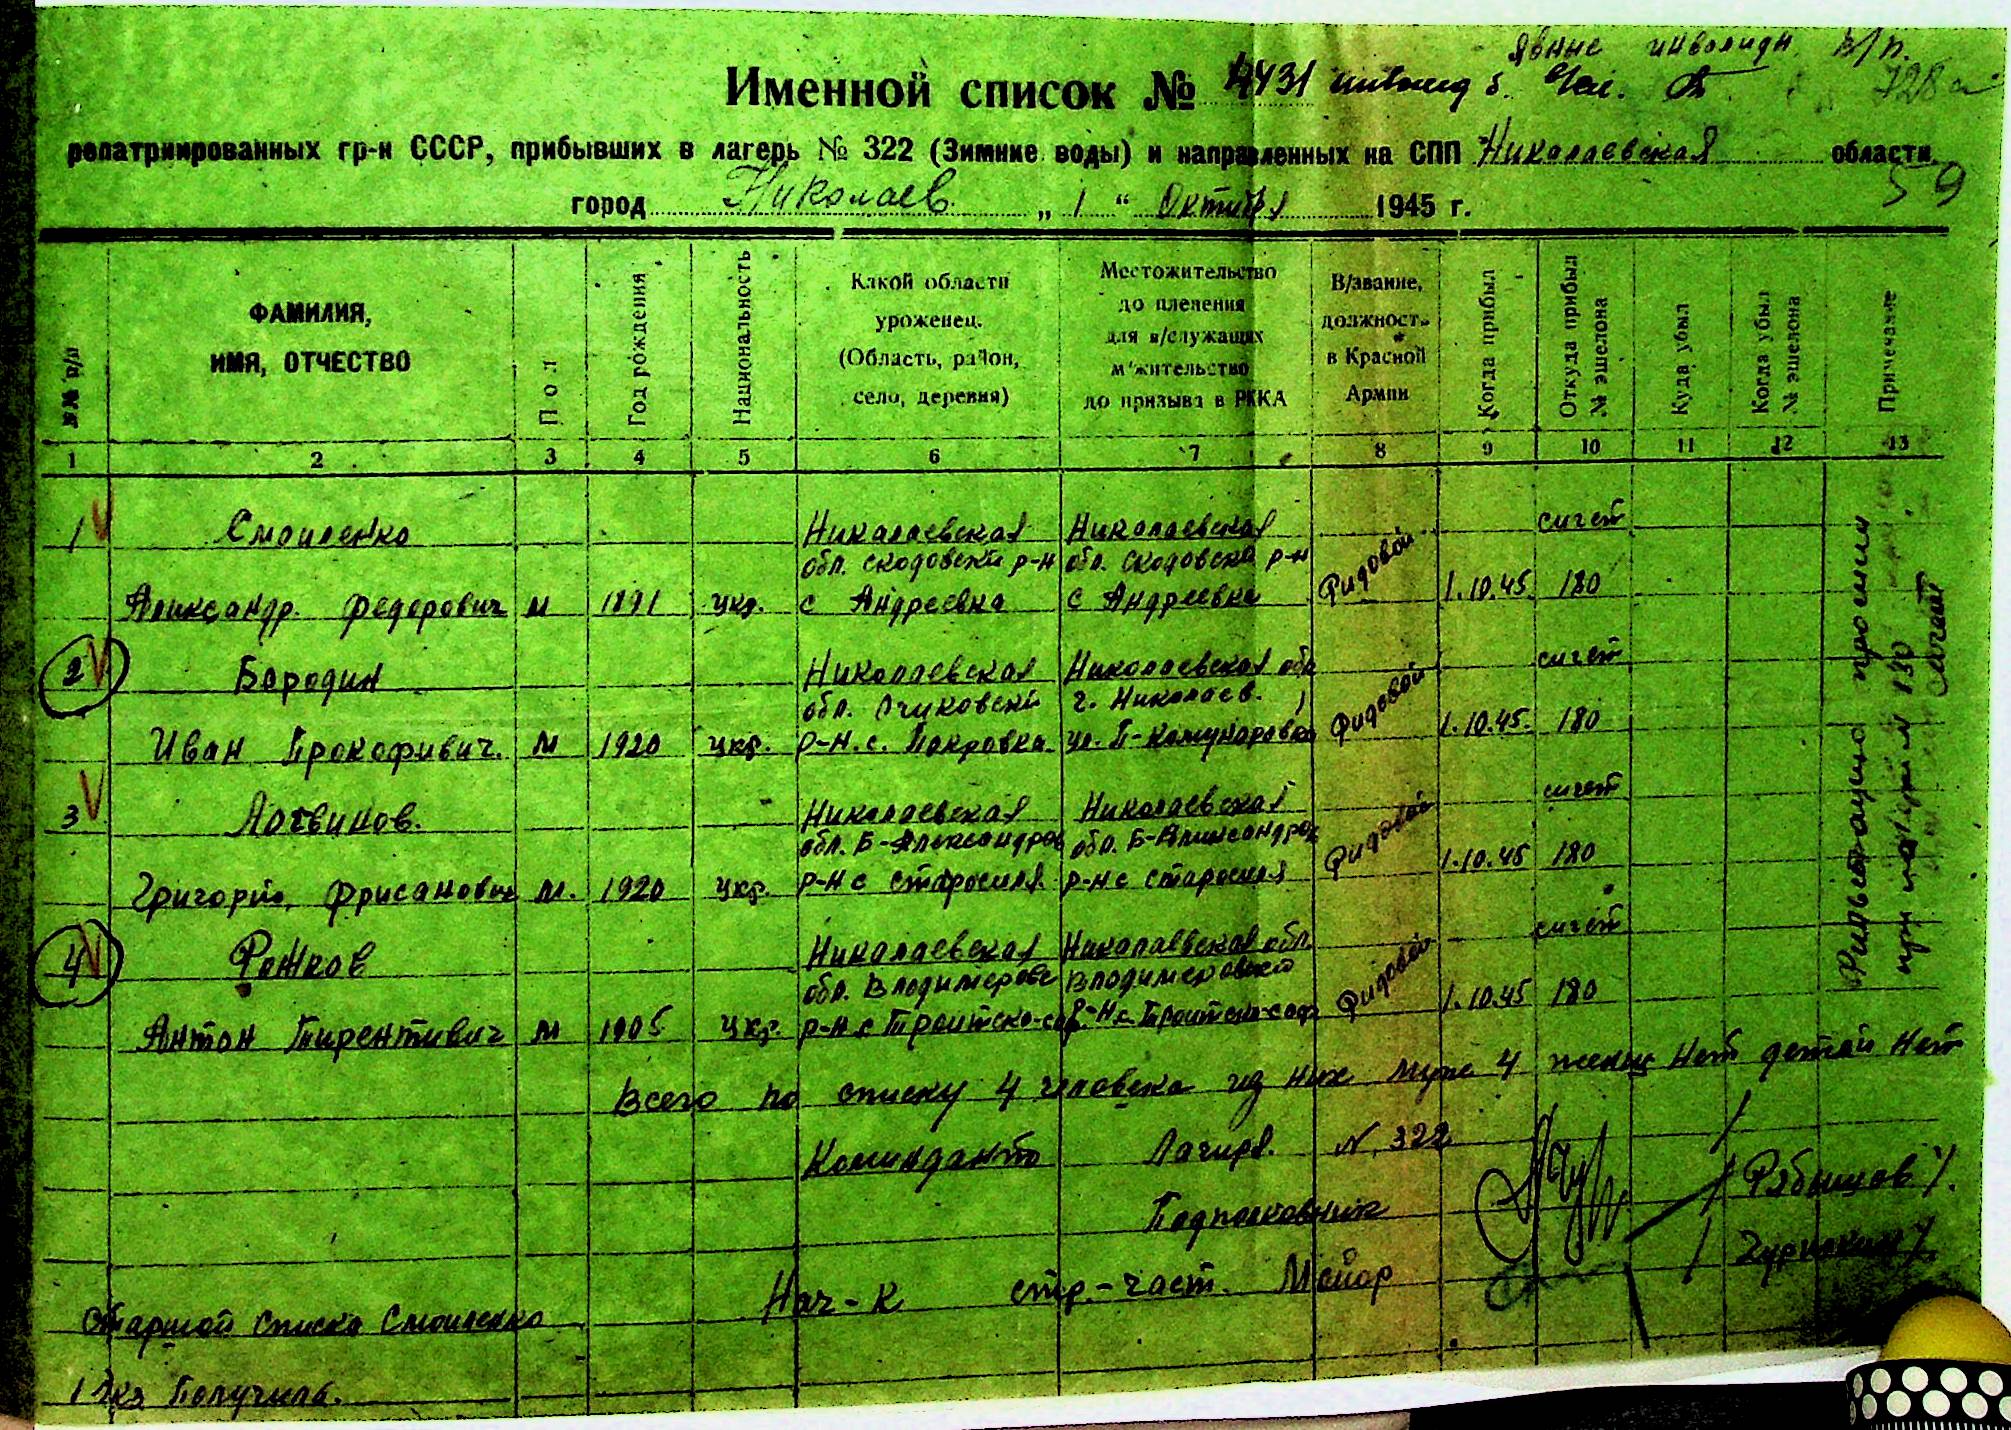 Явные инвалиды
Именной список № 4431 инвалид
728
репатриированных гр-н СССР, прибывших в лагерь № 322 (Зимние воды) и направленных на СПП Николаевская области
59
город Николаев „ 1 “ Октября 1945 г.
№№ п/п
ФАМИЛИЯ,
ИМЯ, ОТЧЕСТВО
Пол
Год рождения
Национальность
Какой области
уроженец.
(Область, район,
село, деревня)
Местожительство
до пленения
для в/служащих
м жительство
до призыва в РККА
В/звание,
должность
в Красной
Армии
Когда прибыл
Откуда прибыл
№ эшелона
Куда убыл
Когда убыл
№ эшелона
Примечание
1 2 3 4 5 6 7 8 9 10 11 12 13
1 Смоиленко Николаевская Николаевская сигет
обл. Скодовски р-н обл. Скодовски р-н
Александр Федорович м 1891 укр. с Андреевка с Андреевка Ридовой 1.10.45. 180
2 Бородин Николаевская Николаевская обл сигет
обл. Очуковски г. Николаев.
Иван Прокофивич. м 1920 укр. р-н.с. Покровка ул. П-Комунаровка Ридовой 1.10.45. 180
3 Логвинов. Николаевская Николаевская сигет
обл. Б-Александров обл. Б-Александров
Григорий Фрисанович м. 1920 укр. р-н с старосиля р-н с старосиля Ридовой 1.10.45 180
4 Рожков Николаевская Николаевская обл сигет
обл. Владимеровс Владимеровского
Антон Тирентивич м 1905 укр. р-н.с Троитско-саф. р-н с. Троитско-саф Ридовой 1.10.45 180
Всего по списку 4 человека из них муж 4 женщ нет детей нет
Коминданто Лагиря. N. 322
Подполковник / Рябышов /.
Нач-к стр.-част. Майор
Старшой списка Смоиленко
1 экз Получила.